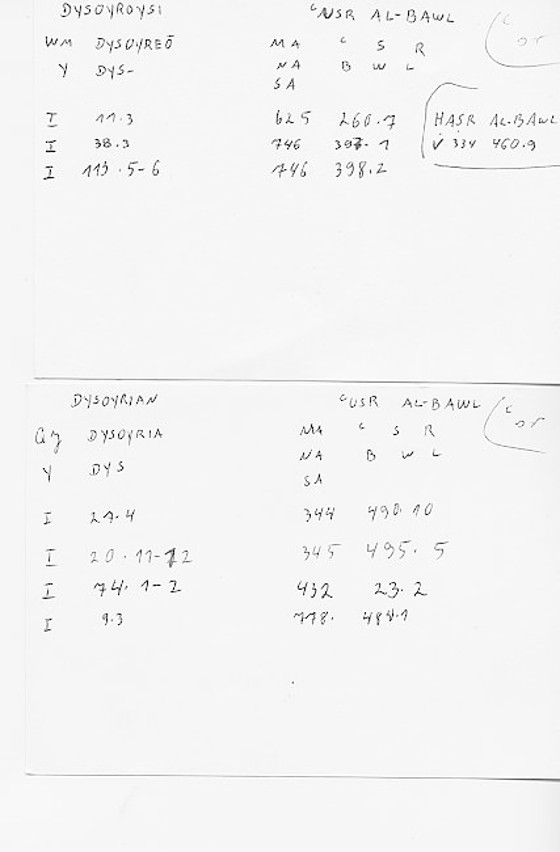 DYSOYROYSI ʿUSR AL-BAWL
WM DYSOYREŌ MA ʿ S R
Y DYS- NA B W L
SA
I 11.3 625 260.7 HASR AL-BAWL
I 38.3 746 397.1 334 460.9
I 113.5-6 746 398.2
DYSOYRIAN ʿUSR AL-BAWL
DYSOYRIA MA ʿ S R
Y DYS NA B W L
SA
I 27.4 344 490.10
I 20.11-12 345 495.5
I 74.1-2 432 23.2
I 9.3 778. 484.1